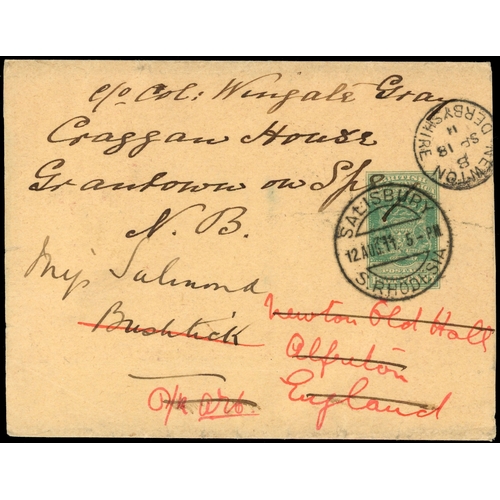 c/o Col: Wingate Gray
Craggan House
Grantown on Spey
N.B.
NEWTON
DERBYSHIRE
8
SP 18
11
SALISBURY
12 AUG 11 5 - PM
S. RHODESIA.
POSTAGE
Miss Salmond
Bushtick
Newton Old Hall
Alfreton
England